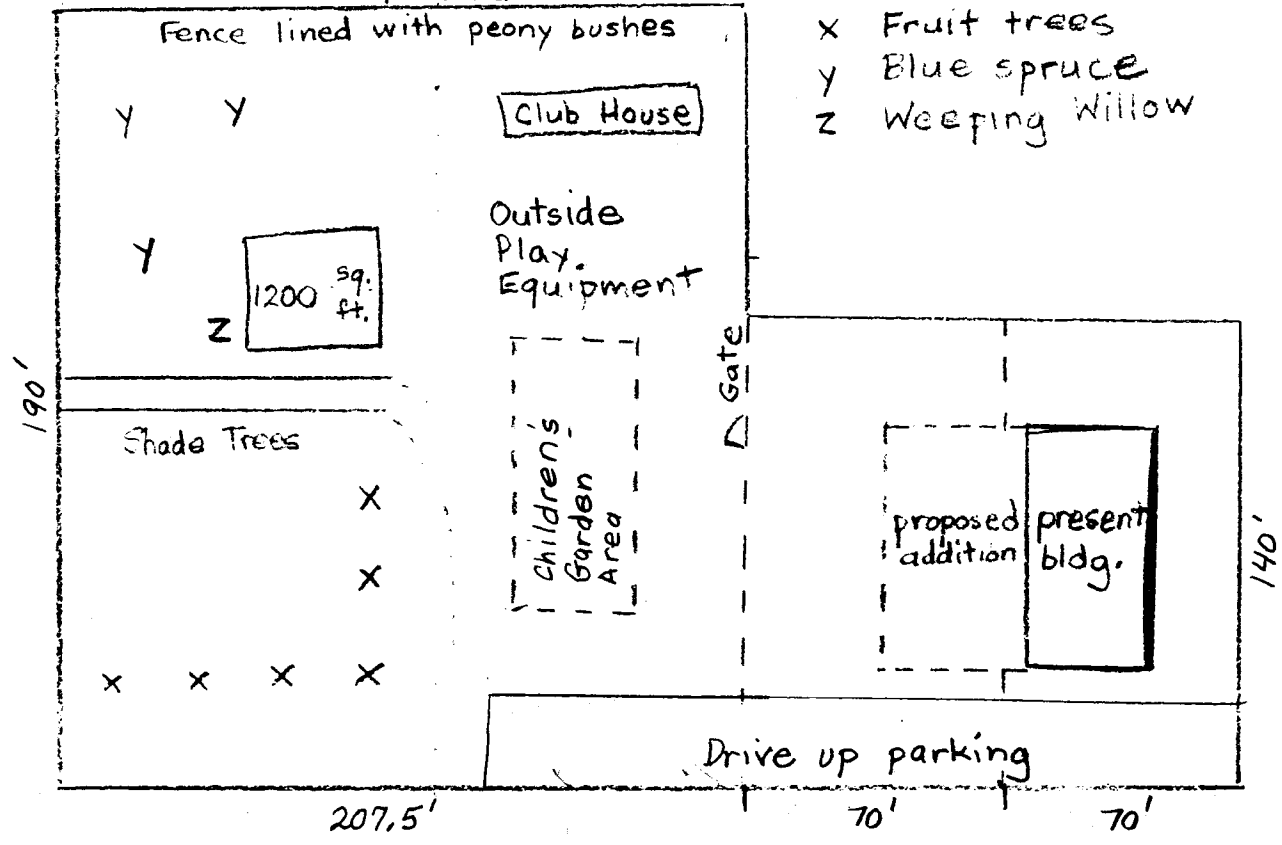 Fence lined with peony bushes
x Fruit trees
y Blue spruce
z Weeping Willow
Y Y
Club House
Outside
Play.
Equipment
Y
1200 sq.
ft.
Z
Gate
190'
Shade Trees
Children's
Garden
Area
x
x
x x x x
proposed
addition
present
bldg.
140'
Drive up parking
207.5'
70'
70'